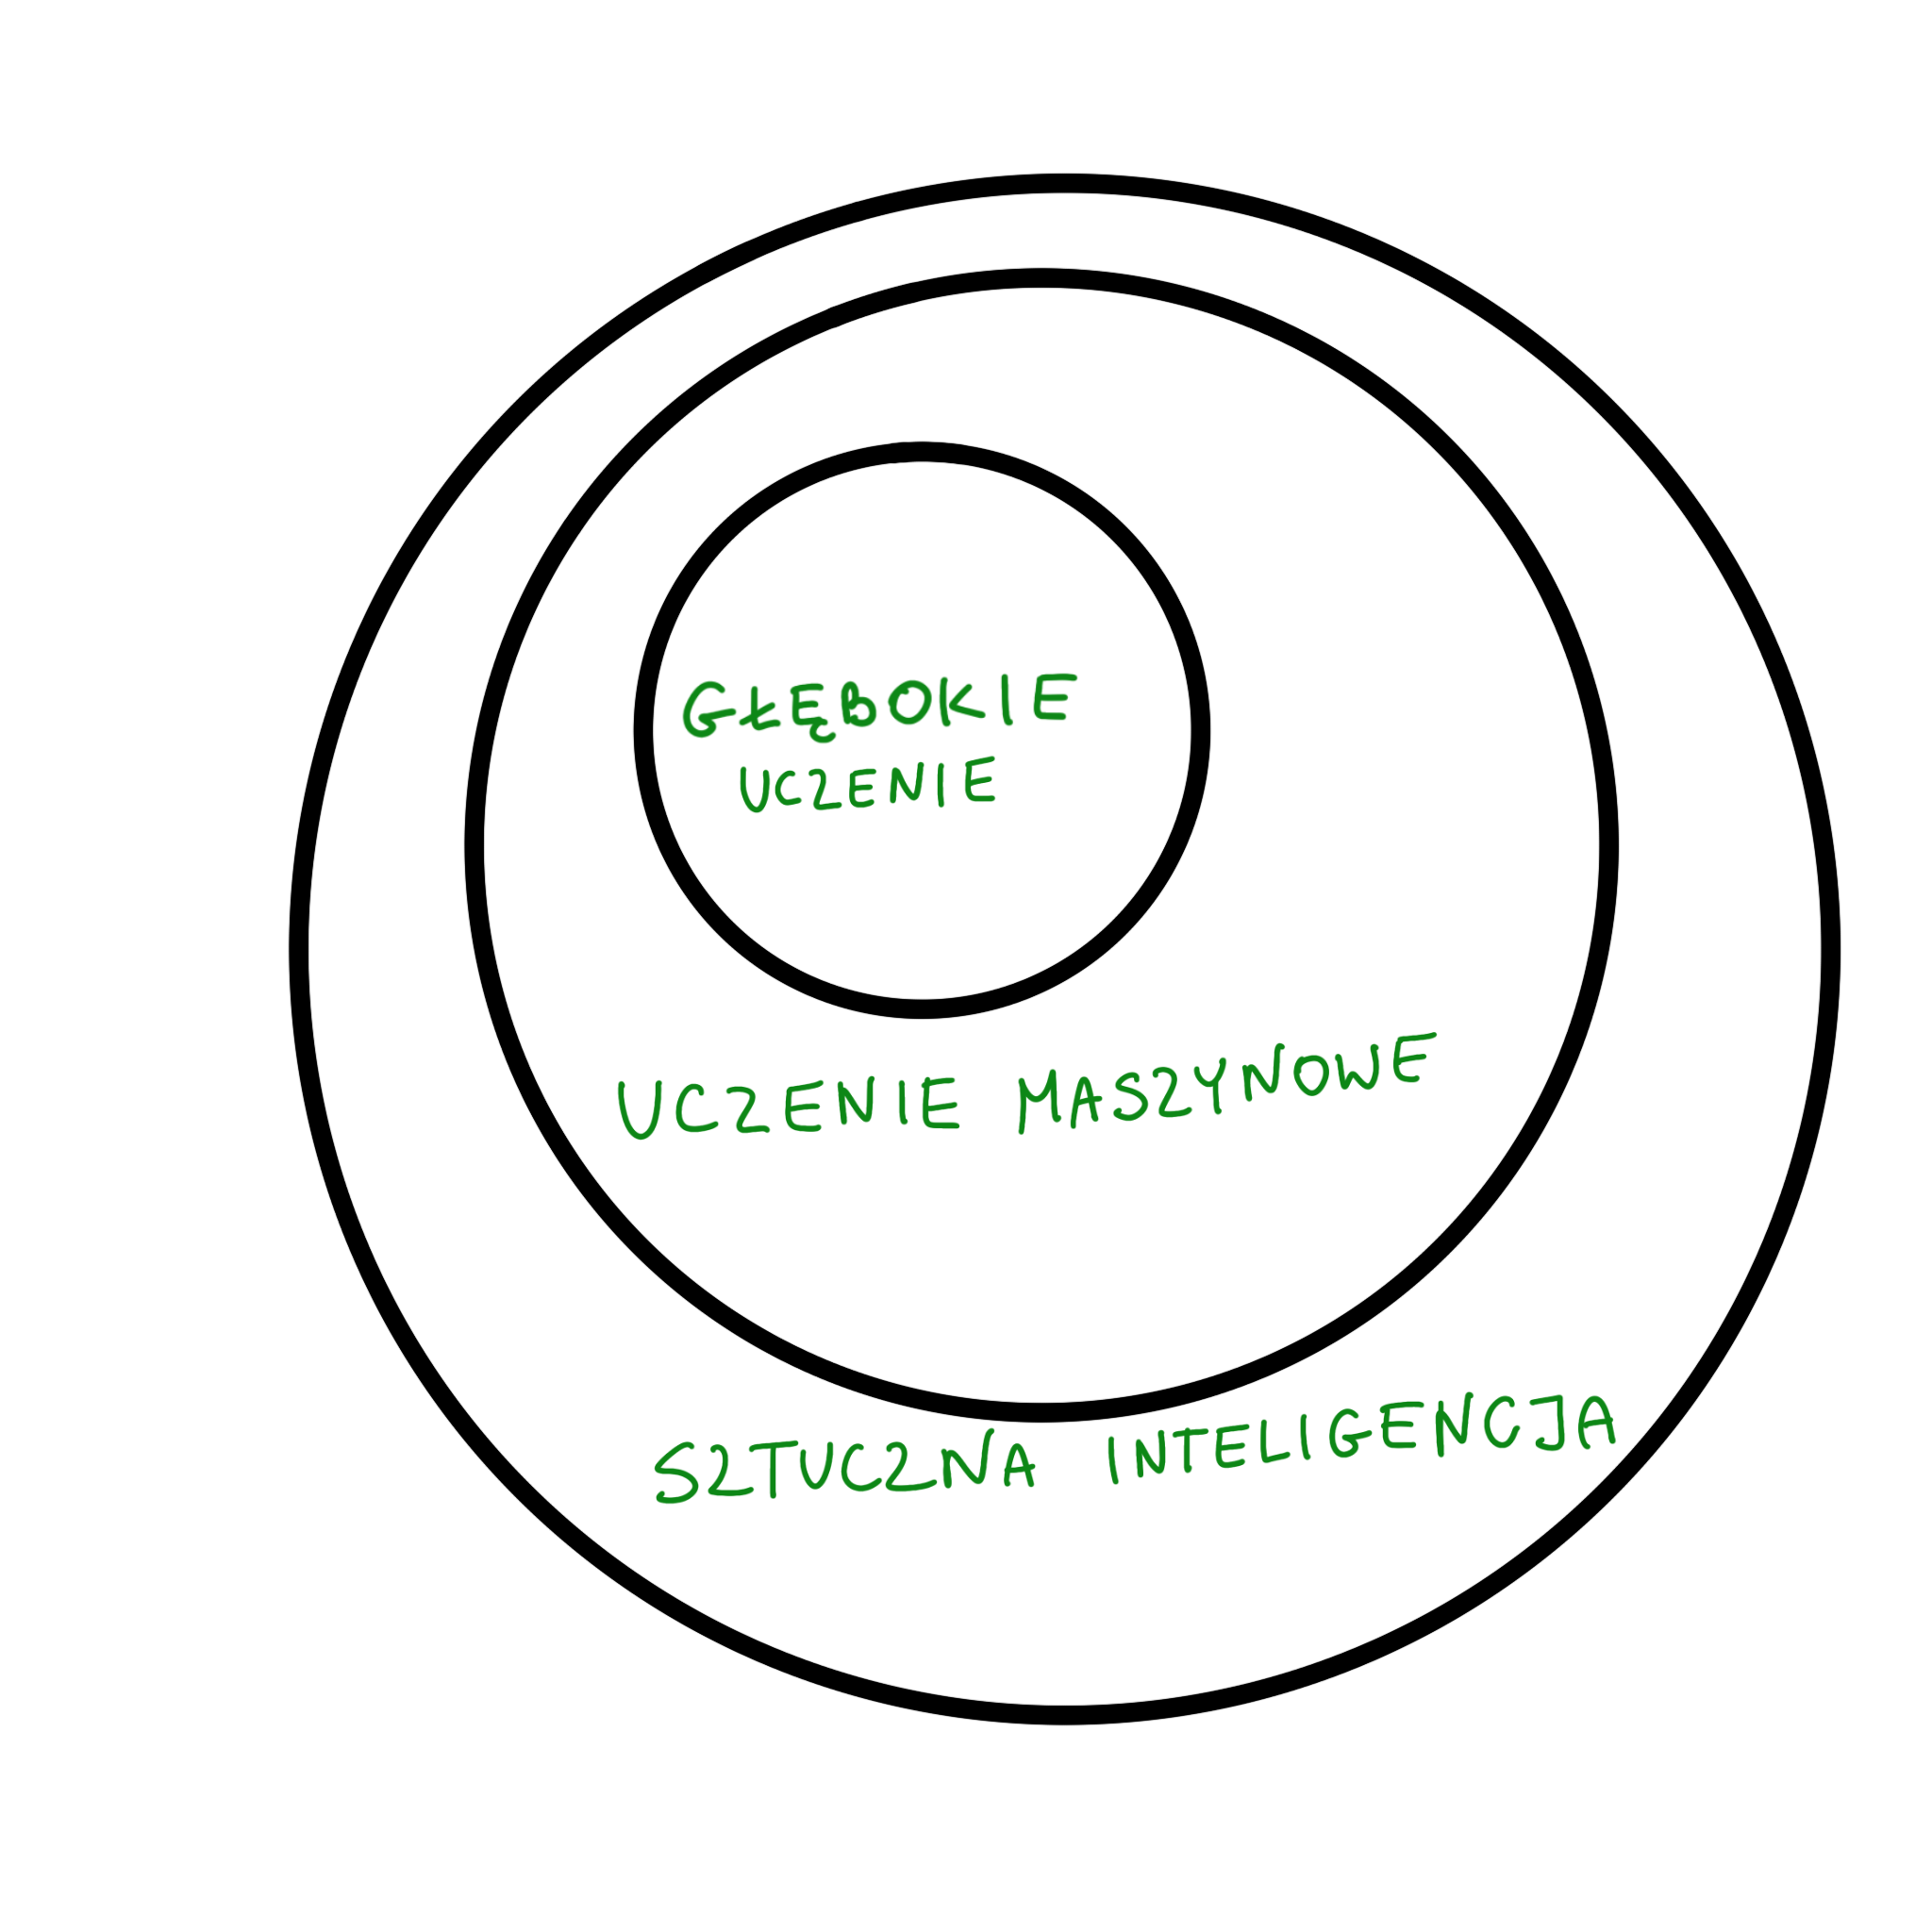 GŁĘBOKIE
UCZENIE
UCZENIE MASZYNOWE
SZTUCZNA INTELIGENCJA